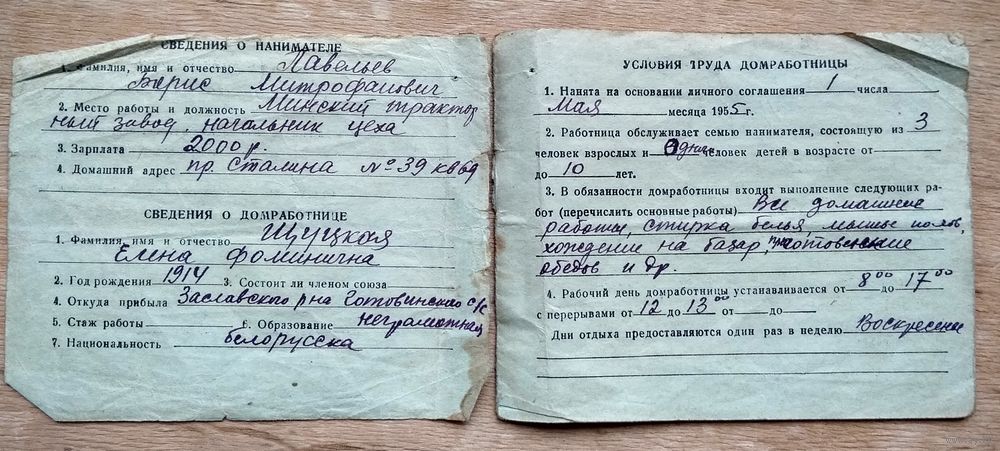 СВЕДЕНИЯ О НАНИМАТЕЛЕ
1. Фамилия, имя и отчество Павельев
Борис Митрофанович
2. Место работы и должность Минский трактор
ный завод, начальник цеха
3. Зарплата 2000 р.
4. Домашний адрес пр. Сталина № 39 кв 69
СВЕДЕНИЯ О ДОМРАБОТНИЦЕ
1. Фамилия, имя и отчество Щуцкая
Елена Фоминична
2. Год рождения 1914 3. Состоит ли членом союза
4. Откуда прибыла Заславского р-на Готовинского с/с
5. Стаж работы 6. Образование неграмотная
7. Национальность белорусска
УСЛОВИЯ ТРУДА ДОМРАБОТНИЦЫ
1. Нанята на основании личного соглашения 1 числа
Мая месяца 1955 г.
2. Работница обслуживает семью нанимателя, состоящую из 3
человек взрослых и один человек детей в возрасте от
до 10 лет.
3. В обязанности домработницы входит выполнение следующих ра-
бот (перечислить основные работы) Все домашние
работы, стирка белья, мытьё полов,
хождение на базар, приготовление
обедов и др.
4. Рабочий день домработницы устанавливается от 8 00 до 17 00
с перерывами от 12 до 13 00 от до
Дни отдыха предоставляются один раз в неделю Воскресение